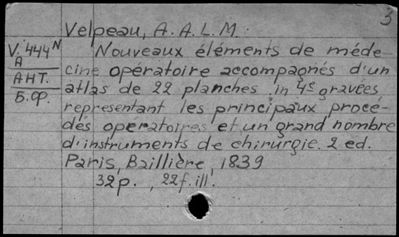 3
Velpeau, A. A. L. M.
V. 444 N
A
AHT.
5. op.
Nouveaux éléments de méde-
cine opératoire accompagnés d'un
atlas de 22 planches in 4° gravées
représentant les principaux procé-
dés operatoires et un grand nombre
d'instruments de chirurgie. 2 ed.
Paris, Baillière, 1839
32p., 22f. ill.